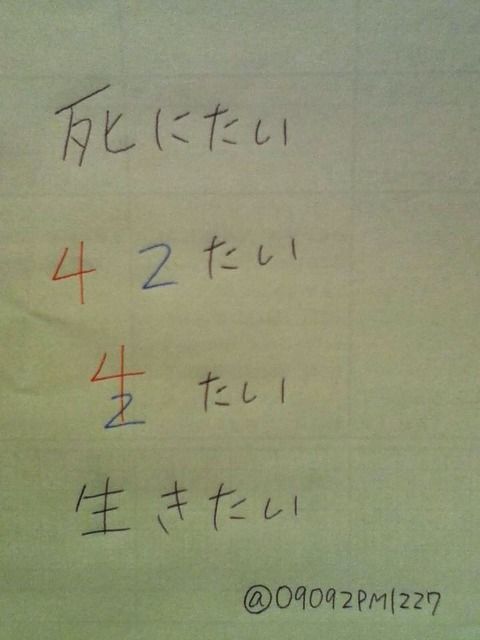 死にたい
42たい
42たい
生きたい
@09092PM1227